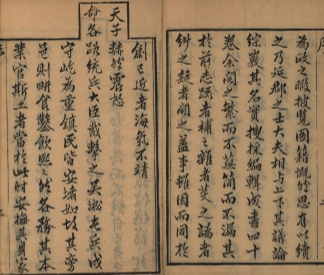 為政之暇披覽圖籍慨然思有以續
之乃延郡之士大夫相與上下其議論
綜覈其名實搜採編輯成書四十
卷余閱之繁而不蕪簡而不漏其
於前志踈者補之雜者芟之譌者
糾之疑者闕之蓋事雖因而同於
創已近者海氛不靖
天子赫然震怒
命各路統兵大臣截擊之吳淞屯兵戍
守屹為重鎮民皆安堵如故其
子則耕食鑿飲熙熙然各務其本
業官斯土者當於此時安撫其家